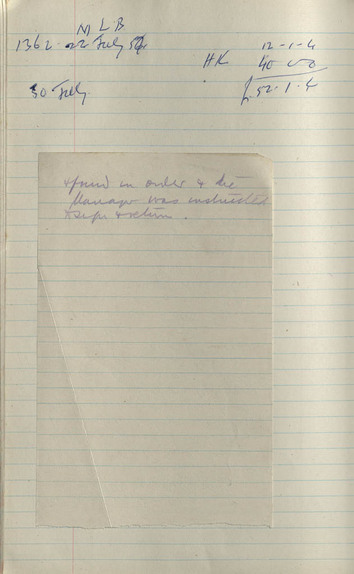 M L B
1362. 22 July 52 12-1-4
HK 40 0-0
30 July. £52-1-4
& found in order & the
Manager was instructed
to sign & return.